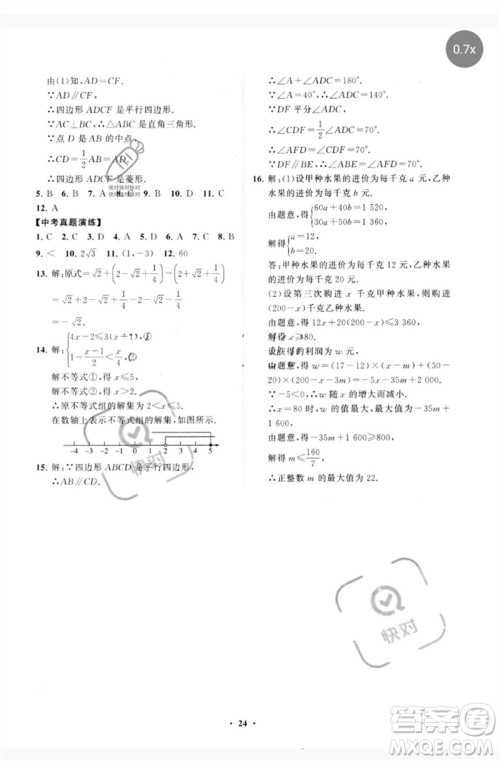 0.7x
由(1)知，AD=CF.
∵AD∥CF，
∴四边形 ADCF 是平行四边形.
∵△ABC 是直角三角形.
∵点 D 是 AB 的中点，
∴CD=1/2AB=AD，
∴四边形 ADCF 是菱形.
5. B 6. A 7. 8. B 9. D 10. B
12. A
【中考真题演练】
1. C 2. D 3. A 4. A 5. C 6. D 7. C 8. B
9. B 10. 2√3 11. (1,-3) 12. 60
13. 解：原式=√2+(2-√2+1/4)-(2-√2+1/4)
=√2+2-√2+1/4-2+√2-1/4
=√2.
14. 解：
解不等式①，得 x≤5.
解不等式②，得 x>2.
∴原不等式组的解集为 2<x≤5.
在数轴上表示不等式组的解集，如图所示.
-4 -3 -2 -1 0 1 2 3 4 5
15. 解：∵四边形 ABCD 是平行四边形，
∴AB∥CD.
∴∠A+∠ADC=180°.
∴∠ADC=
∵DF 平分∠ADC，
∴∠CDF=1/2∠ADC=70°.
∴∠AFD=∠CDF=70°.
16. 解：(1)设甲种水果的进价为每千克 a 元，乙种水果的进价为每千克 b 元.
由题意，得{60a+40b=1 520, 30a+50b=1 360.
解得{a=12, b=20.
答：甲种水果的进价为每千克 12 元，乙种水果的进价为每千克 20 元.
(2)设第三次购进 x 千克甲种水果，则购进 (200-x)千克乙种水果.
由题意，得 12x+20(200-x)≤3 360，
解得 x≥80.
设获得的利润为 w 元，
由题意，得 w=(17-12)×(x-m)+(30-20)×(200-x-3m)=-5x-35m+2 000，
∵-5<0，
∴w 随 x 的增大而减小，
∴x=80 时，w 的值最大，最大值为-35m+1 600，
由题意，得-35m+1 600≥800，
解得 m≤160/7，
∴正整数 m 的最大值为 22.
快对
快对
· 24 ·
答案圈
MXQE.COM